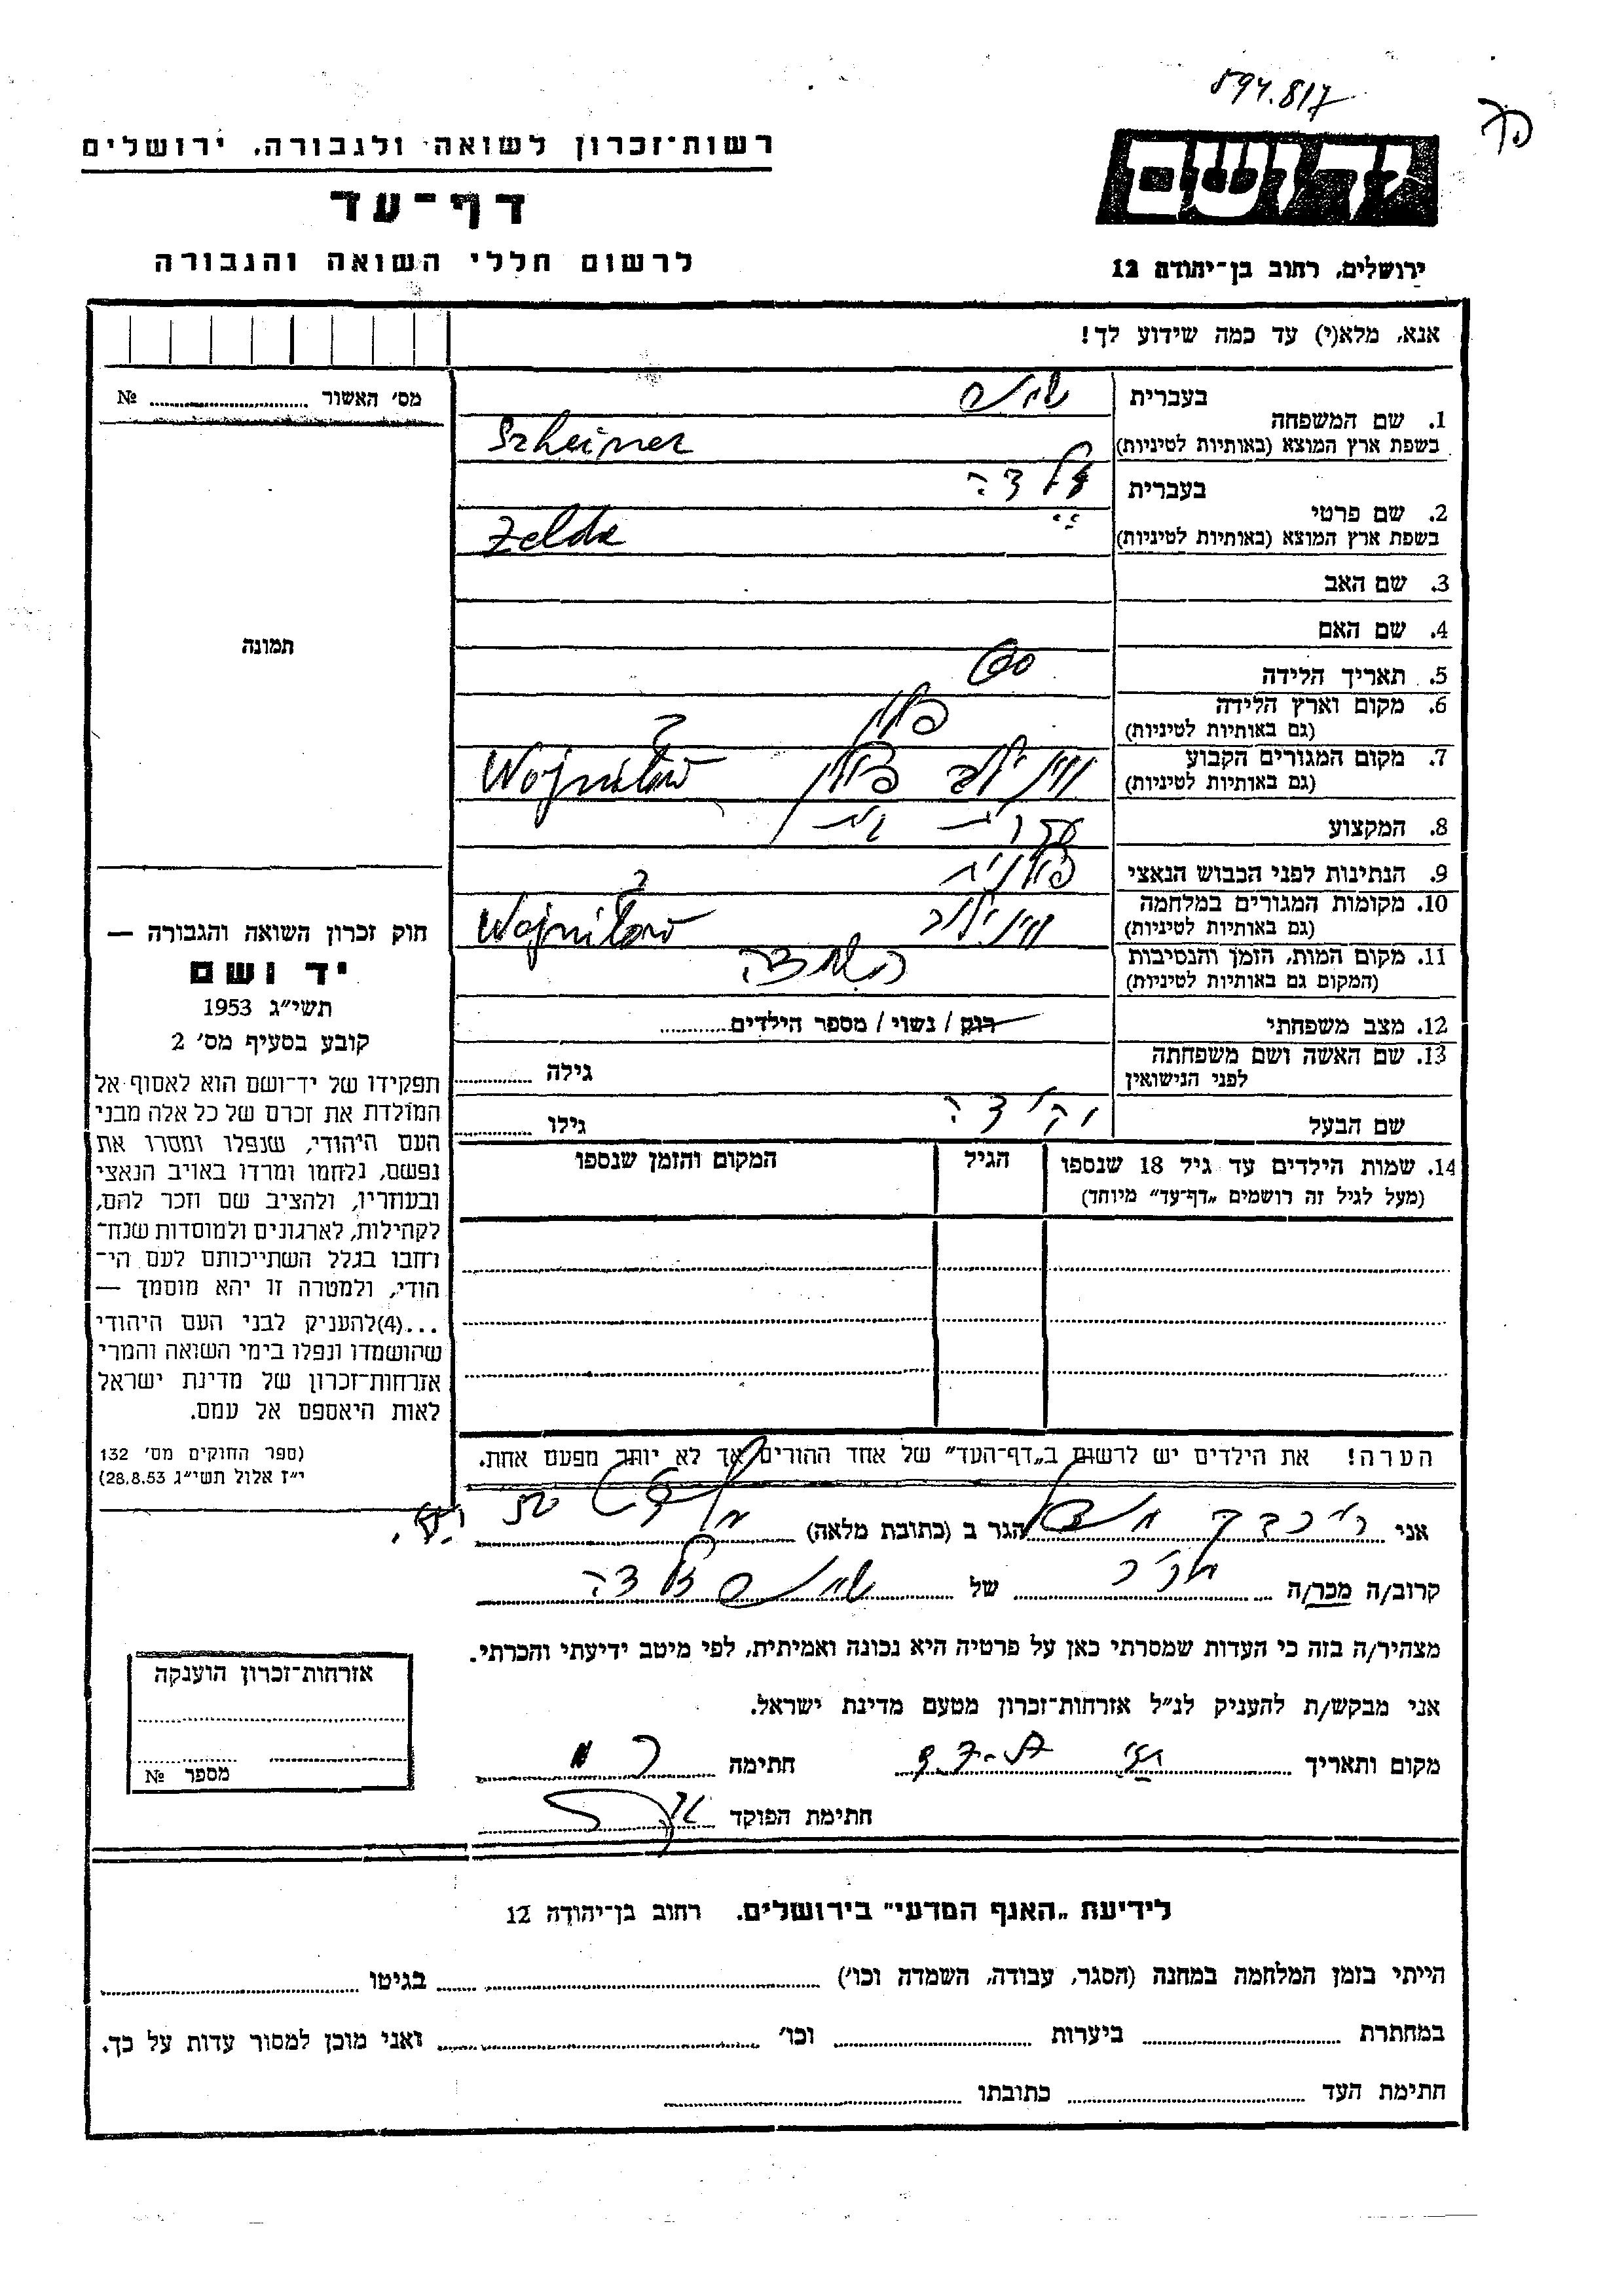 894.817
רשות־זכרון לשואה ולגבורה, ירושלים
יד ושם
דף־עד
לרשום חללי השואה והגבורה
ירושלים, רחוב בן־יהודה 12
אנא, מלא(י) עד כמה שידוע לך!
מס׳ האשור № 
1. שם המשפחה בעברית
בשפת ארץ המוצא (באותיות לטיניות) Szheiner
2. שם פרטי בעברית זלדה
בשפת ארץ המוצא (באותיות לטיניות) Zelda
3. שם האב
4. שם האם
תמונה
5. תאריך הלידה
6. מקום וארץ הלידה פולין
(גם באותיות לטיניות)
7. מקום המגורים הקבוע פולין Wojniłów
(גם באותיות לטיניות)
8. המקצוע
9. הנתינות לפני הכבוש הנאצי פולנית
10. מקומות המגורים במלחמה Wojniłów
(גם באותיות לטיניות)
11. מקום המות, הזמן והנסיבות
(המקום גם באותיות לטיניות)
12. מצב משפחתי רוק / נשוי / מספר הילדים
13. שם האשה ושם משפחתה גילה
לפני הנישואין
שם הבעל גילו
14. שמות הילדים עד גיל 18 שנספו הגיל המקום והזמן שנספו
(מעל לגיל זה רושמים „דף־עד״ מיוחד)
חוק זכרון השואה והגבורה —
יד ושם
תשי״ג 1953
קובע בסעיף מס׳ 2
תפקידו של יד־ושם הוא לאסוף אל
המולדת את זכרם של כל אלה מבני
העם היהודי, שנפלו ומסרו את
נפשם, נלחמו ומרדו באויב הנאצי
ובעוזריו, ולהציב שם וזכר להם,
לקהילות, לארגונים ולמוסדות שנח־
רחבו בגלל השתייכותם לעם הי־
הודי, ולמטרה זו יהא מוסמך —
...(4) להעניק לבני העם היהודי
שהושמדו ונפלו בימי השואה והמרי
אזרחות־זכרון של מדינת ישראל
לאות היאספם אל עמם.
(ספר החוקים מס׳ 132
י״ז אלול תשי״ג 28.8.53)
הערה! את הילדים יש לרשום ב„דף־העד״ של אחד ההורים אך לא יותר מפעם אחת.
אני הגר ב (כתובת מלאה)
קרוב/ה מכר/ה של זלדה
מצהיר/ה בזה כי העדות שמסרתי כאן על פרטיה היא נכונה ואמיתית, לפי מיטב ידיעתי והכרתי.
אני מבקש/ת להעניק לנ״ל אזרחות־זכרון מטעם מדינת ישראל.
מקום ותאריך חתימה
חתימת הפוקד
אזרחות־זכרון הוענקה
מספר №
לידיעת „האגף המדעי״ בירושלים. רחוב בן־יהודה 12
הייתי בזמן המלחמה במחנה (הסגר, עבודה, השמדה וכו׳) בגיטו
במחתרת ביערות וכו׳ ואני מוכן למסור עדות על כך.
חתימת העד כתובתו